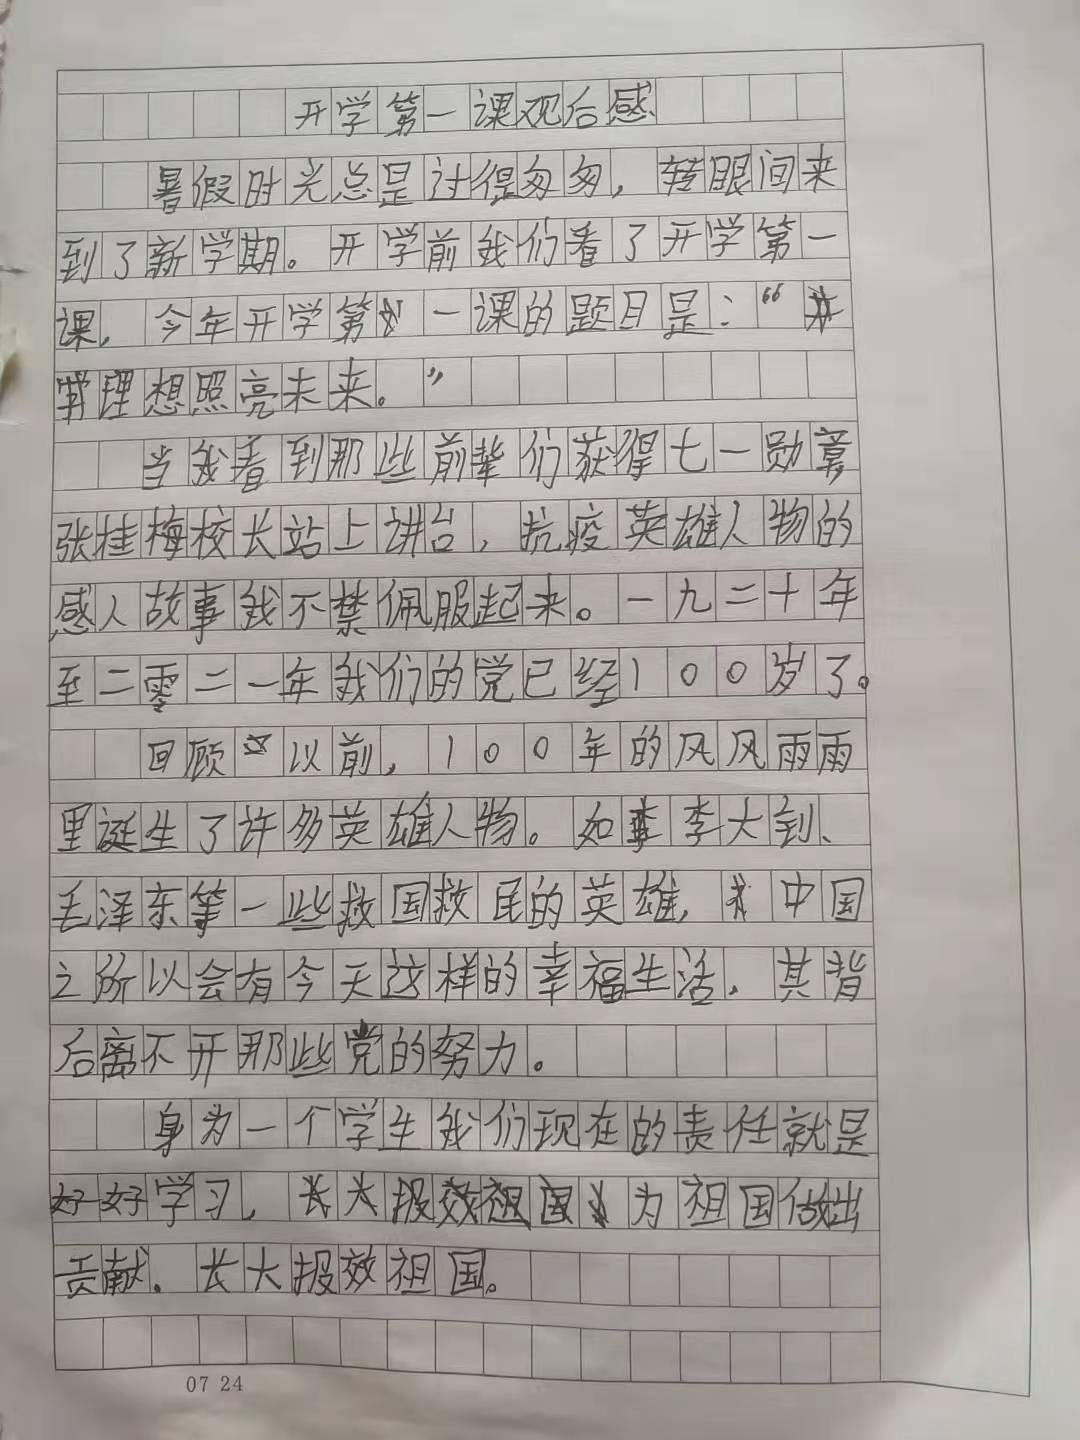 开学第一课观后感
暑假时光总是过得匆匆，转眼间来
到了新学期。开学前我们看了开学第一
课，今年开学第一课的题目是：“
理想照亮未来。”
当我看到那些前辈们获得七一勋章
张桂梅校长站上讲台，抗疫英雄人物的
感人故事我不禁佩服起来。一九二十年
至二零二一年我们的党已经100岁了。
回顾以前，100年的风风雨雨
里诞生了许多英雄人物。如李大钊、
毛泽东等一些救国救民的英雄，中国
之所以会有今天这样的幸福生活，其背
后离不开那些党的努力。
身为一个学生我们现在的责任就是
好好学习，为祖国做出
贡献。长大报效祖国。
07 24